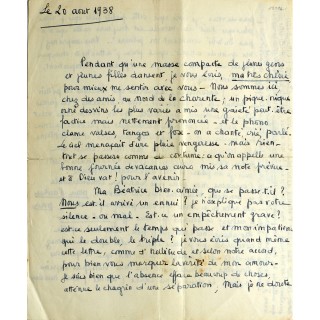 Le 20 août 1938
Pendant qu'une masse compacte de jeunes gens
et jeunes filles dansent, je vous écris, ma très chérie
pour mieux me sentir avec vous - Nous sommes ici
chez des amis au nord de la Charente; un pique-nique
aux desseins les plus variés a mis une gaieté peut-être
factice mais nettement prononcée - et le phono
clame valses, tangos et fox - on a chanté, crié, parlé.
Le ciel menaçait d'une pluie vengeresse - mais rien -
tout se passera comme de coutume: ce qu'on appelle une
bonne journée de vacances aura mis sa note brève -
et à Dieu vat! pour l'avenir!
Ma Béatrice bien-aimée, que se passe-t-il?
Nous est-il arrivé un ennui? je n'explique pas votre
silence - ou mal - Est-ce un empêchement grave?
est-ce seulement le temps qui passe et mon impatience
qui le double, le triple? je vous écris quand même
cette lettre, comme d'habitude et selon notre accord,
pour bien vous marquer la vérité de mon amour -
Je sais bien que l'absence efface beaucoup de choses,
atténue le chagrin d'une séparation, mais je ne doute